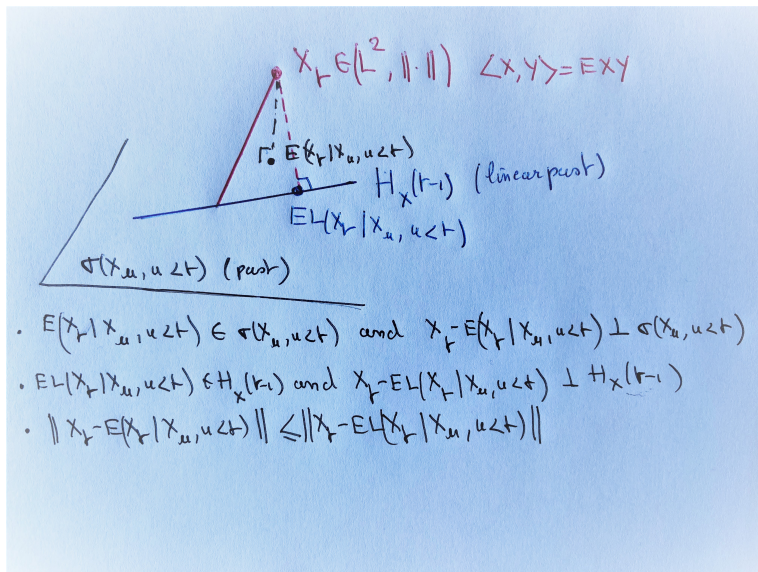 X_t ∈ (L², ‖·‖) <X,Y> = EXY
E(X_t | X_u, u<t)
H_X(t-1) (linear past)
EL(X_t | X_u, u<t)
σ(X_u, u<t) (past)
• E(X_t | X_u, u<t) ∈ σ(X_u, u<t) and X_t - E(X_t | X_u, u<t) ⊥ σ(X_u, u<t)
• EL(X_t | X_u, u<t) ∈ H_X(t-1) and X_t - EL(X_t | X_u, u<t) ⊥ H_X(t-1)
• ‖X_t - E(X_t | X_u, u<t)‖ ≤ ‖X_t - EL(X_t | X_u, u<t)‖